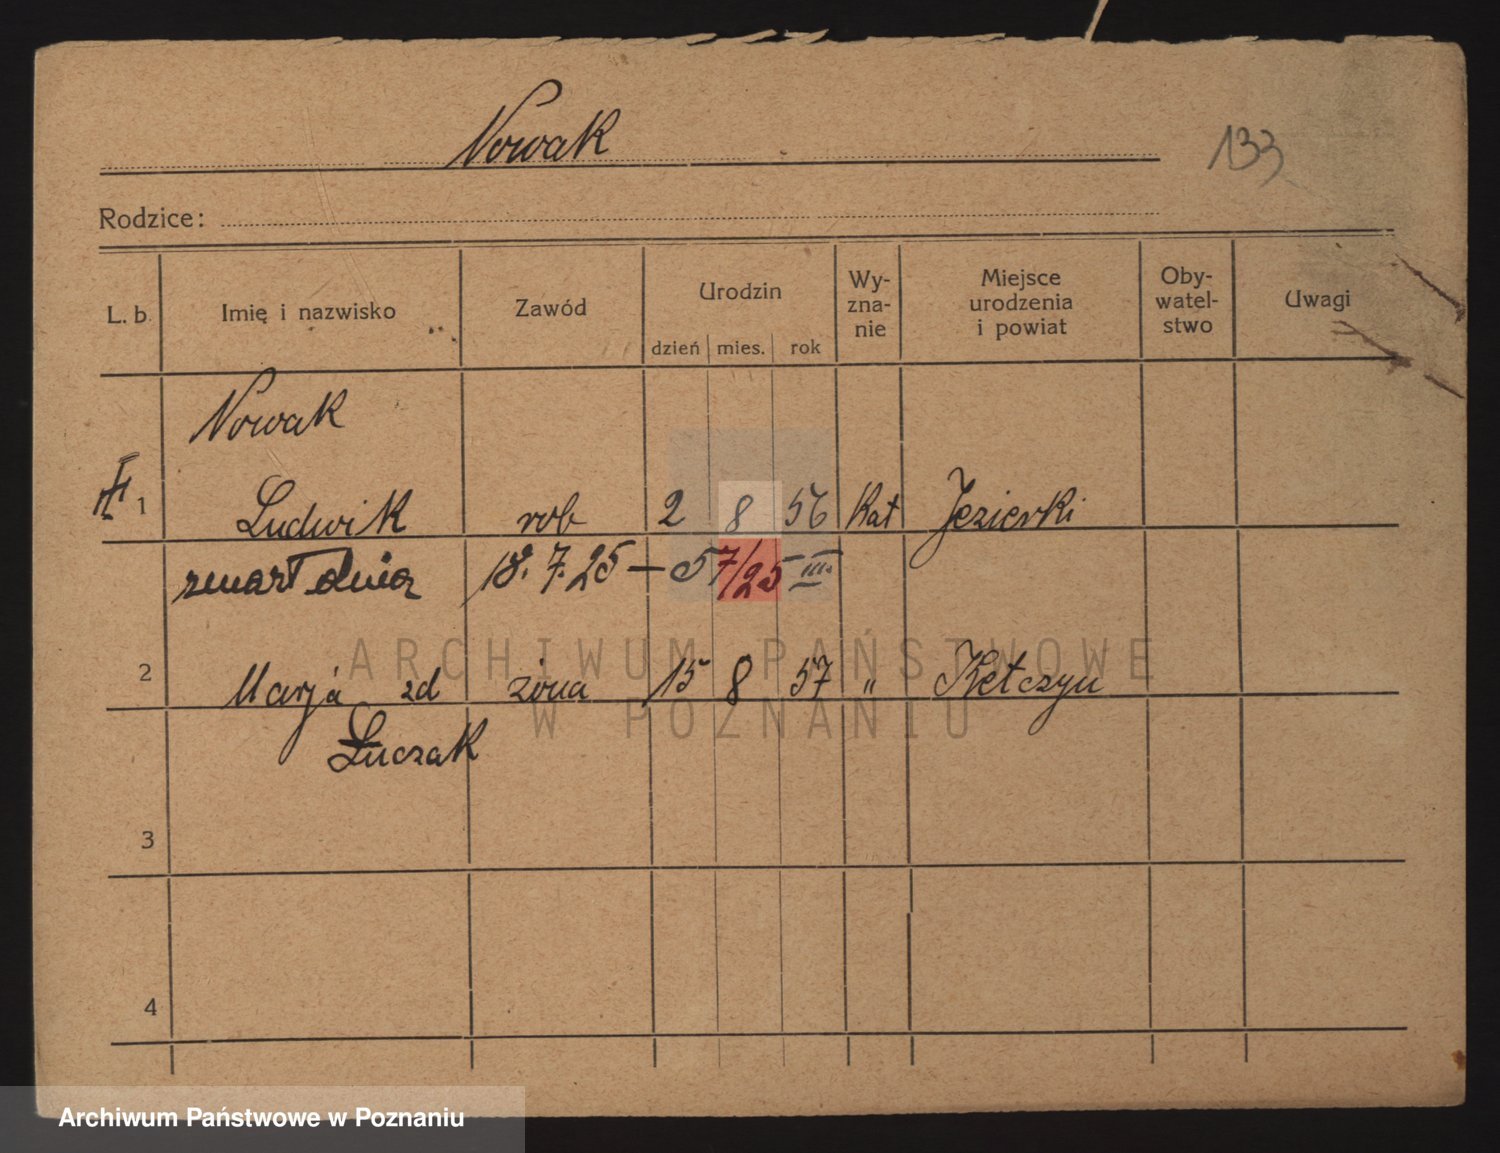 Nowak
133
Rodzice:
L. b. Imię i nazwisko Zawód Urodzin dzień mies. rok Wy-zna-nie Miejsce urodzenia i powiat Oby-watel-stwo Uwagi
Nowak
1 Ludwik rob 2 8 56 Kat Jezierki
zmarł dnia 18. 7. 25 — 57/25 III.
2 Marja zd żona 15 8 57 " Ketczyn
Łuczak
3
4
ARCHIWUM PAŃSTWOWE
W POZNANIU
Archiwum Państwowe w Poznaniu